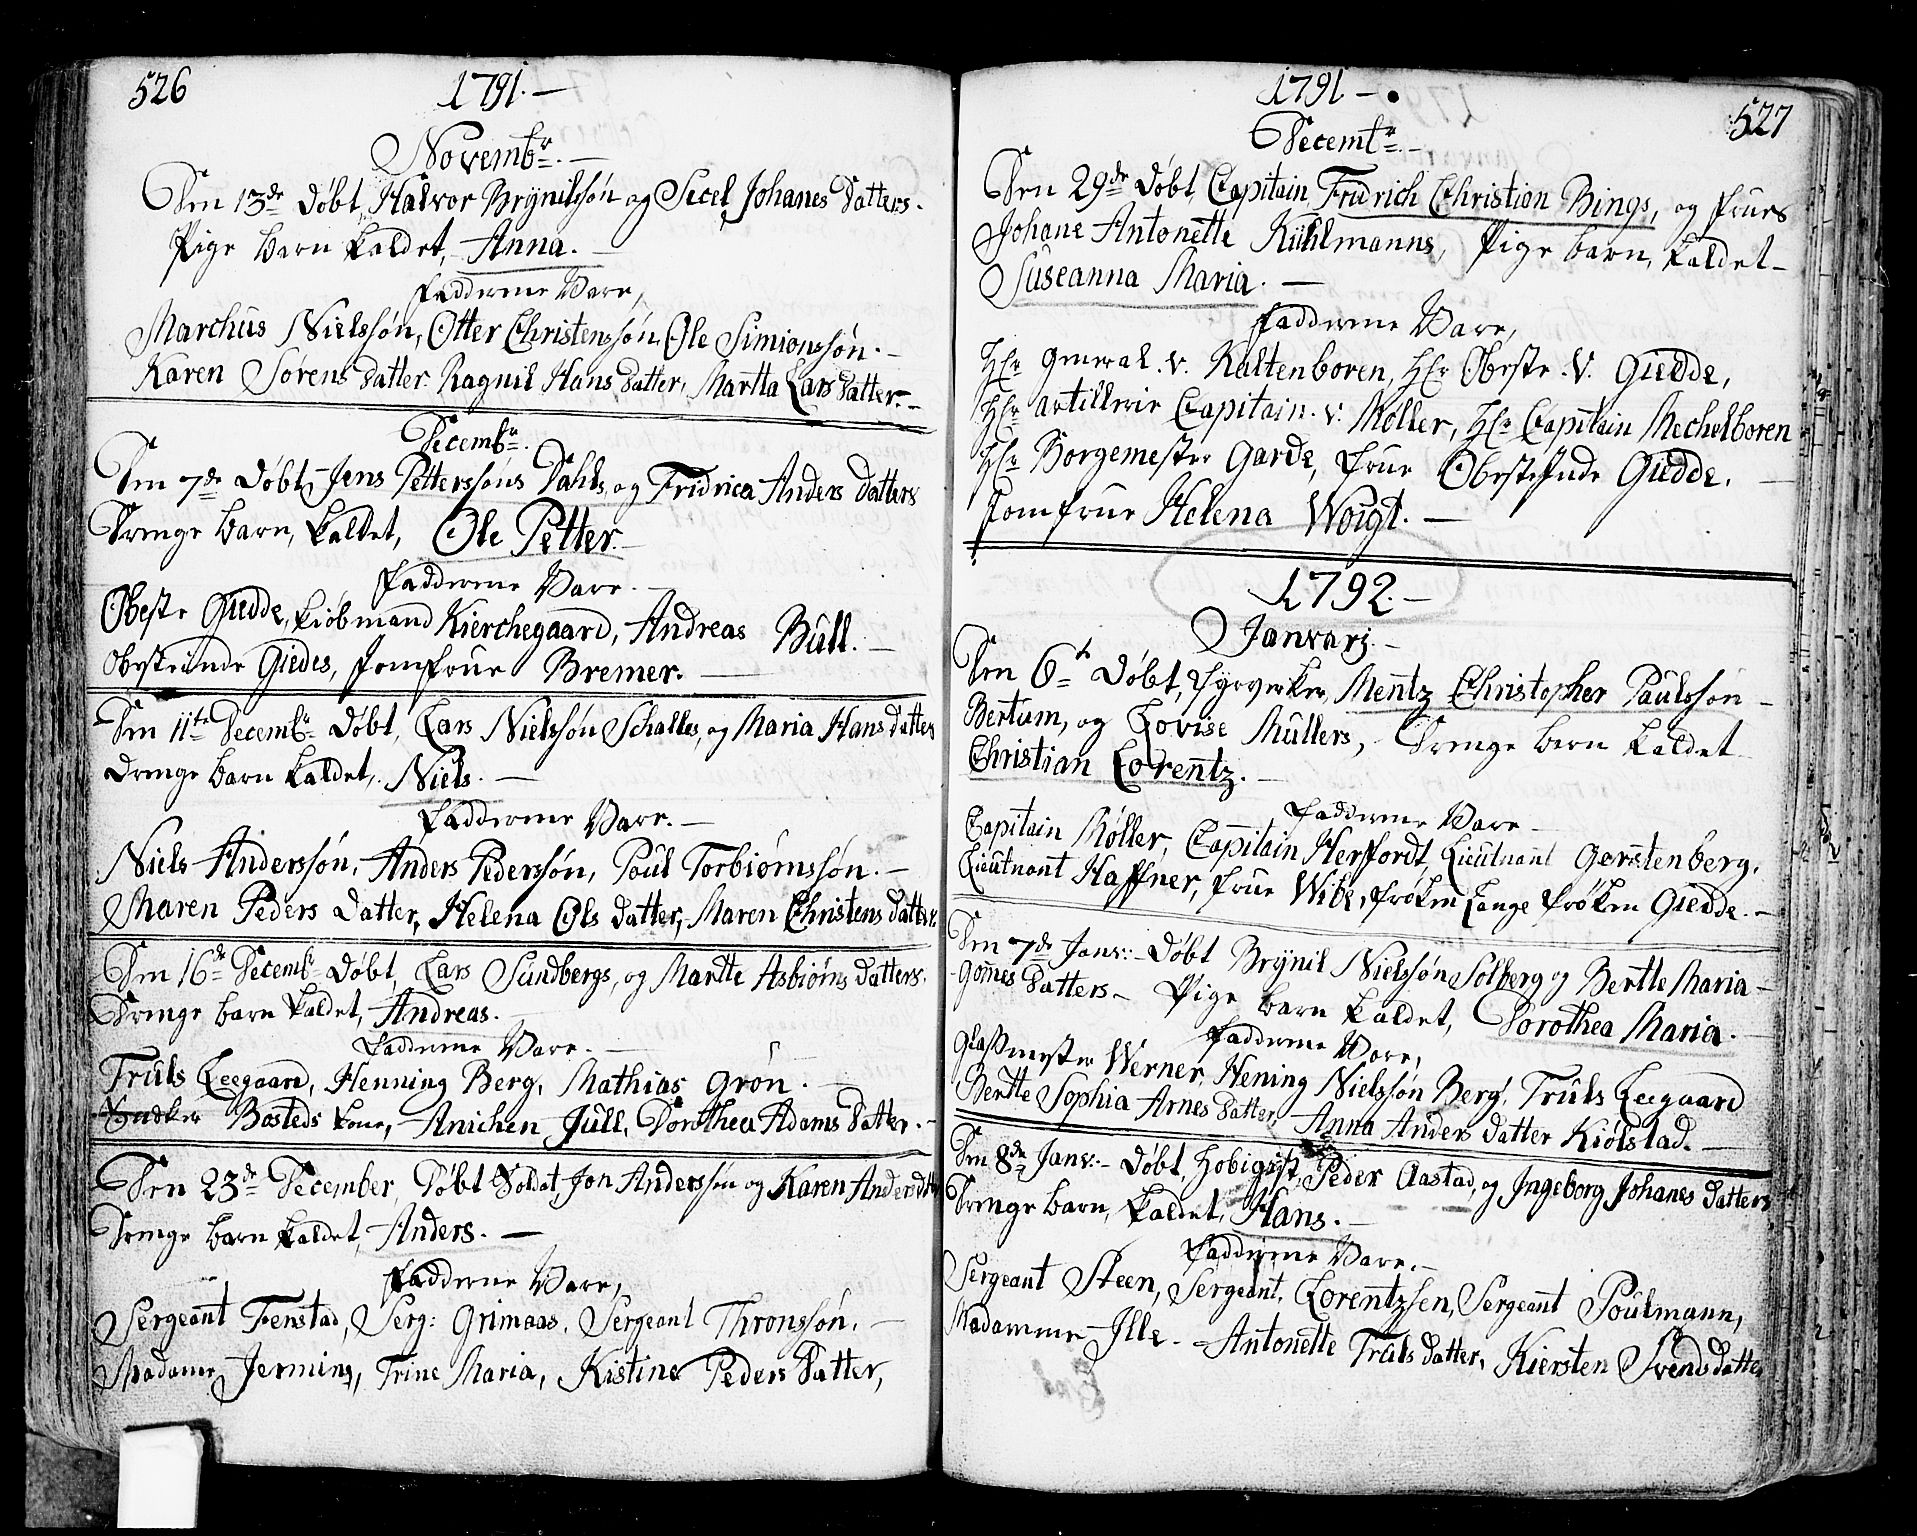 526
1791. —
Novembr. —
Den 13de Døbt, Halvor Brynilssøn og Sicel Johanes Datters.
Pige barn kaldet, Anna. —
Fadderne Vare,
Marchus Nielssøn, Otter Christenssøn, Ole Simionssøn. —
Karen Sørens Datter. Ragnil Hans Datter, Martta Lars Datter. —
Decembr.
Den 7de Døbt, Jens Petterssøns Dahls, og Fridrica Anders Datters
Drenge barn, kaldet, Ole Petter. —
Fadderne Vare. —
Obeste Giedde, kiøbmand Kierchegaard, Andreas Bull. —
Obesteinde Giedes, Jomfrue Bremer. —
Den 11te Decembr Døbt, Lars Nielssøn Schalles, og Maria Hans Datters
Drenge barn kaldet, Niels. —
Fadderne Vare. —
Niels Anderssøn, Anders Pederssøn, Poul Torbiørnssøn. —
Maren Peders Datter, Helena Ols Datter, Maren Christens Datter.
Den 16de Decembr Døbt, Lars Sundbergs, og Martte Asbiørns Datters.
Drenge barn kaldet, Andreas. —
Fadderne Vare. —
Truls Leegaard, Henning Berg, Mathias Grøn. —
Bosteds kone, Anichen Jull, Dorothea Adams Datter. —
Den 23de December, Døbt Soldat, Jon Anderssøn og Karen Andersdtr
Drenge barn kaldet, Anders. —
Fadderne Vare,
Sergeant Fenstad, Serg: Grimaas, Sergeant Thronssøn. —
Madame Jerming, Trine Maria, Kistine Peders Datter,
1791 —
527
Decembr. —
Den 29de Døbt, Capitain Fridrich Christian Bings, og Frues
Johane Antonette Kühlmanns, Pige barn, kaldet —
Suseanna Maria. —
Fadderne Vare,
Hr General. v. Kaltenboren, Hr Obeste. v. Giedde,
Hr Artillerie Capitain. v. Møller, Hr Capitain Mechelboren
Hr Borgemester Garde, Frue Obesteinde Giedde. —
Jomfrue Helena Woigt. —
1792. —
Janvarj. —
Den 6te Døbt, Fyrverker, Mentz Christopher Paulssøn —
Bertum, og Lovise Müllers, Drenge barn kaldet
Christian Lorentz. —
Fadderne Vare —
Capitain Møller, Capitain Herffordt, Lieutnant Gerstenberg,
Lieutnant Haffner, Frue Wibe, Frøken Lange Frøken Giedde. —
Den 7de Janv: Døbt Brynil Nielssøn Solberg og Bertte Maria —
Datters — Pige barn kaldet, Dorothea Maria. —
Fadderne Vare,
Glassmester Werner, Hening Nielssøn Berg, Truls Leegaard
Bertte Sophia Arnes Datter, Anna Anders Datter Kiølstad. —
Den 8de Janv: Døbt, Hobigist, Peder Aastad, og Ingeborg Johanes Datters
Drenge barn, kaldet, Hans. —
Fadderne Vare. —
Sergeant Steen, Sergeant, Lorentzsen, Sergeant Poulmann,
Madamme Ille — Antonette Truls datter, Kiersten Svends datter